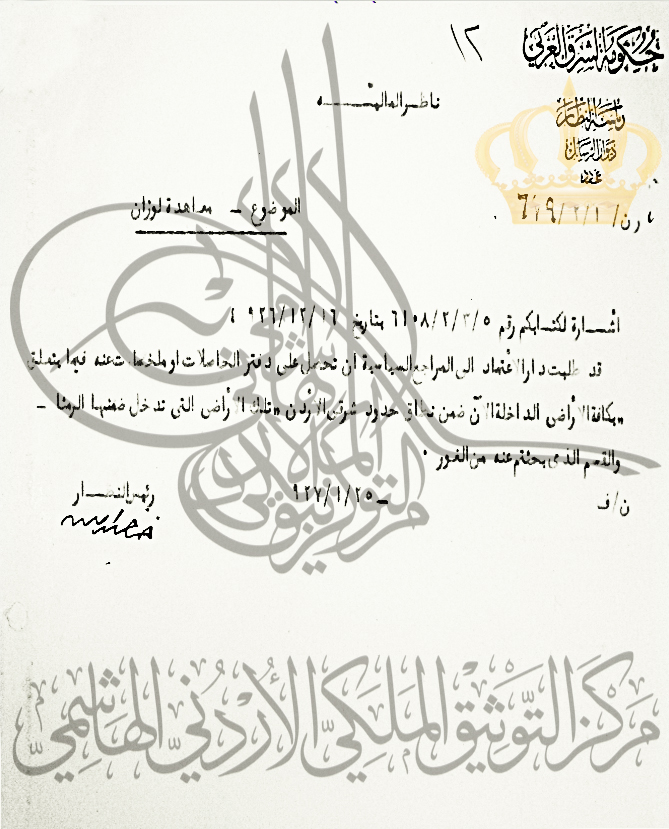 ١٢
حكومة الشرق العربي
رئاسة النظار
ديوان الرسائل
عدد
ناظر المالية
الموضوع ــ معاهدة لوزان
اشارة لكتابكم رقم ٦١٠٨/٢/٣/٥ بتاريخ ٩٢٦/١٢/١٦ ؛
قد طلبت دار الاعتماد الى المراجع السياسية ان تحصل على دفتر الحاصلات او ملخصات عنه فيما يتعلق
«بكافة الاراضى الداخلة الآن ضمن نطاق حدود شرقى الأردن » تلك الأراضى التى تدخل ضمنها الرمثا ــ
والقسم الذى بحثتم عنه من الغور ٠
ن/ف
ــ ٩٢٧/١/٢٥
رئيس النظار
مركز التوثيق الملكي الأردني الهاشمي
مركز التوثيق الملكي الأردني الهاشمي